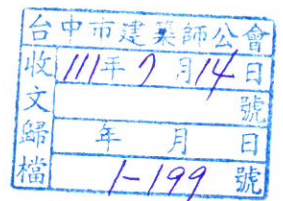 台中市建築師公會
收文
111年7月14日
號
歸檔
年 月 日
1-199 號